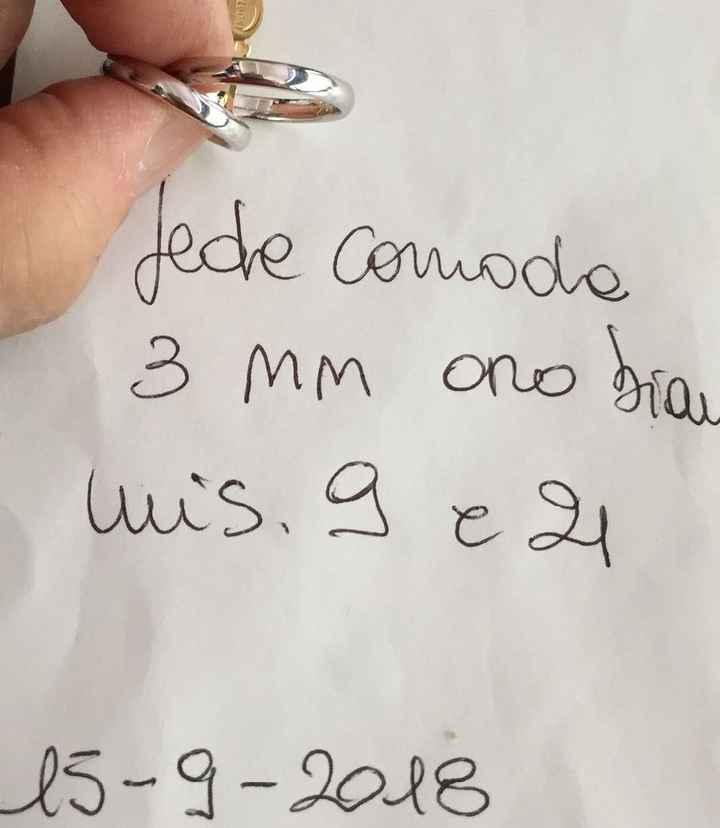 fede comoda
3 MM oro bian
mis. 9 e 21
15-9-2018